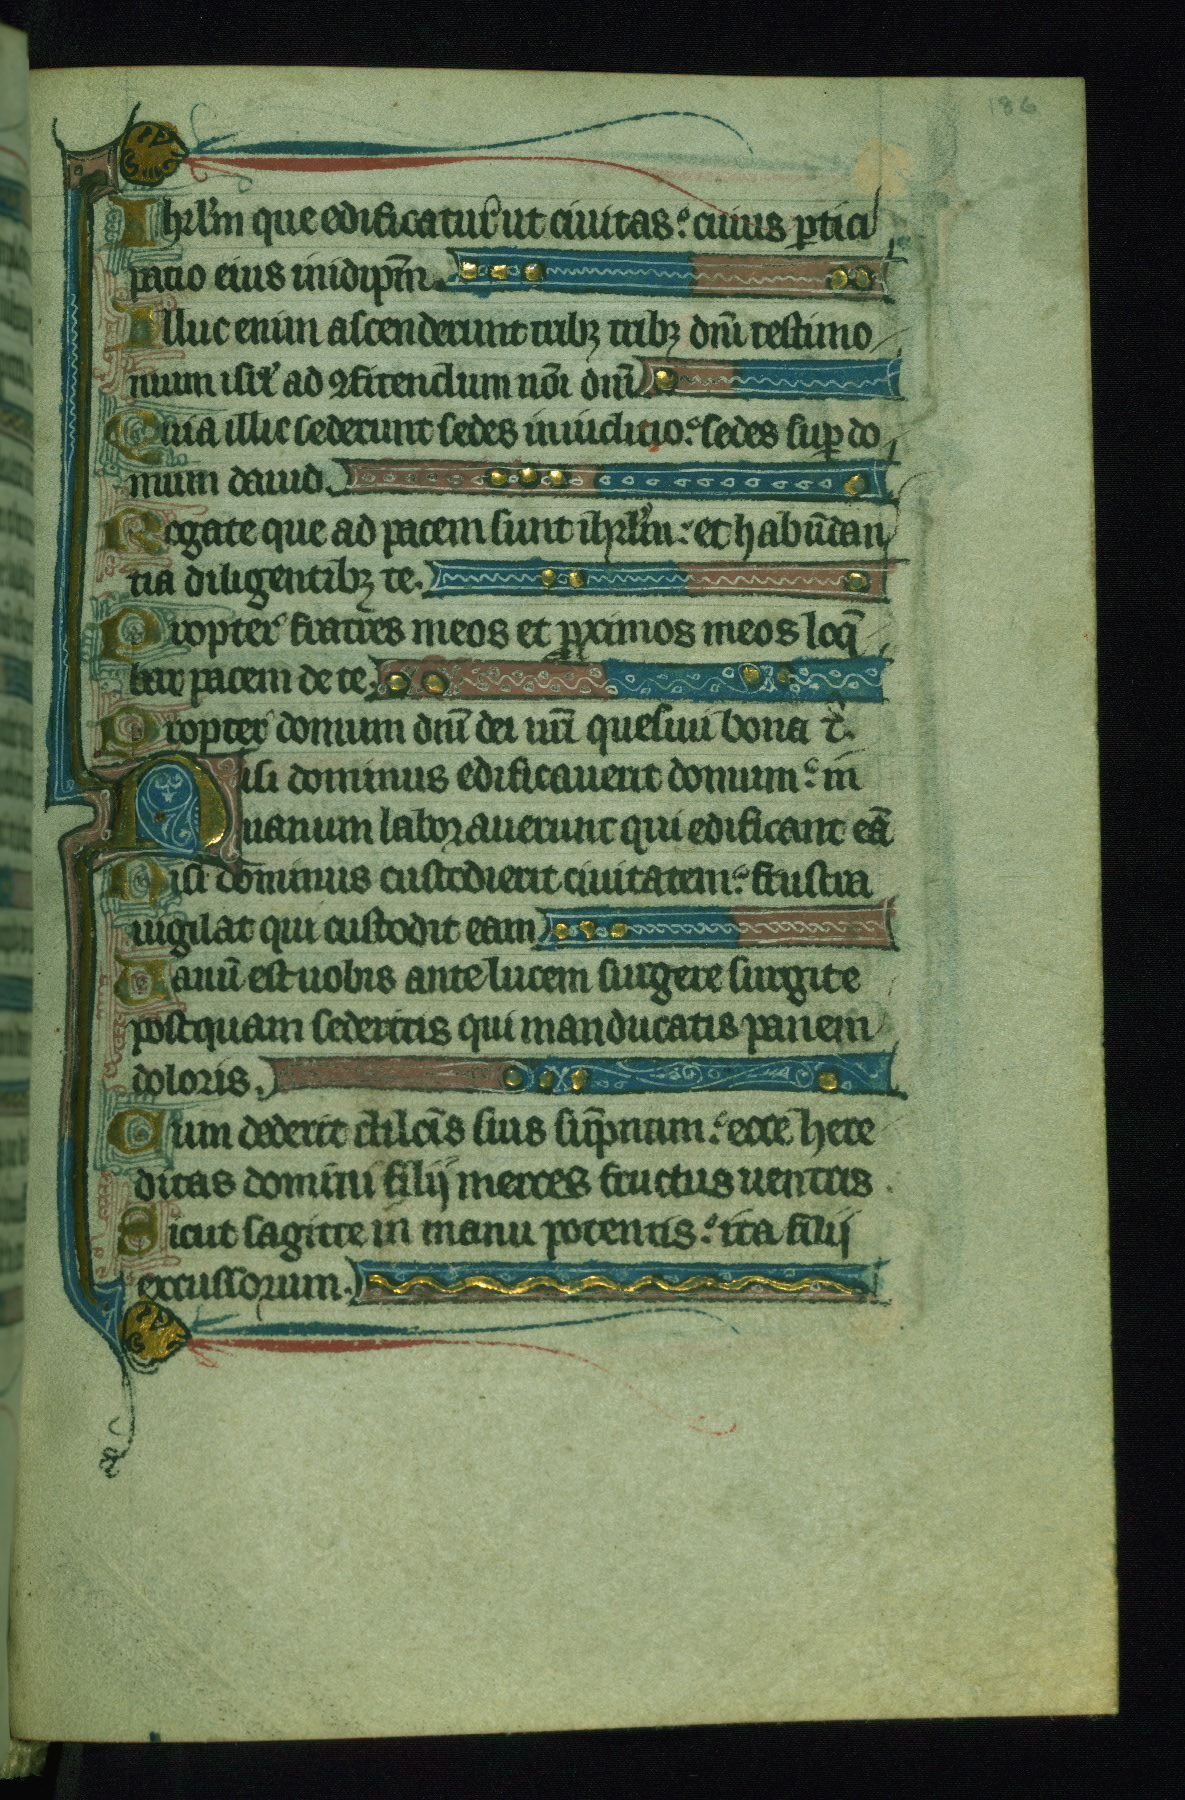 186
Ihrl'm que edificatur ut ciuitas: cuius ꝑtici
patio eius inidip̄m.
Illuc enim ascenderunt tribꝫ tribꝫ dn̄i testimo
nium isrl' ad ꝯfitendum nōi dn̄i
Quia illic sederunt sedes in iudicio: sedes suꝑ do
mum dauid.
Rogate que ad pacem sunt ihrl'm: et habūdan
tia diligentibꝫ te.
Propter fratres meos et ꝓximos meos loq̄
bar pacem de te,
Propter domum dn̄i dei nr̄i quesiui bona t̄.
Nisi dominus edificauerit domum: in
uanum laborauerunt qui edificant eā
Nisi dominus custodierit ciuitatem: frustra
uigilat qui custodit eam
Uanū est uobis ante lucem surgere surgite
postquam sederitis qui manducatis panem
doloris.
Cum dederit dilc̄is suis sūpnum: ecce here
ditas domini filij merces fructus uentris.
Sicut sagitte in manu potentis: ita filij
excussorum.